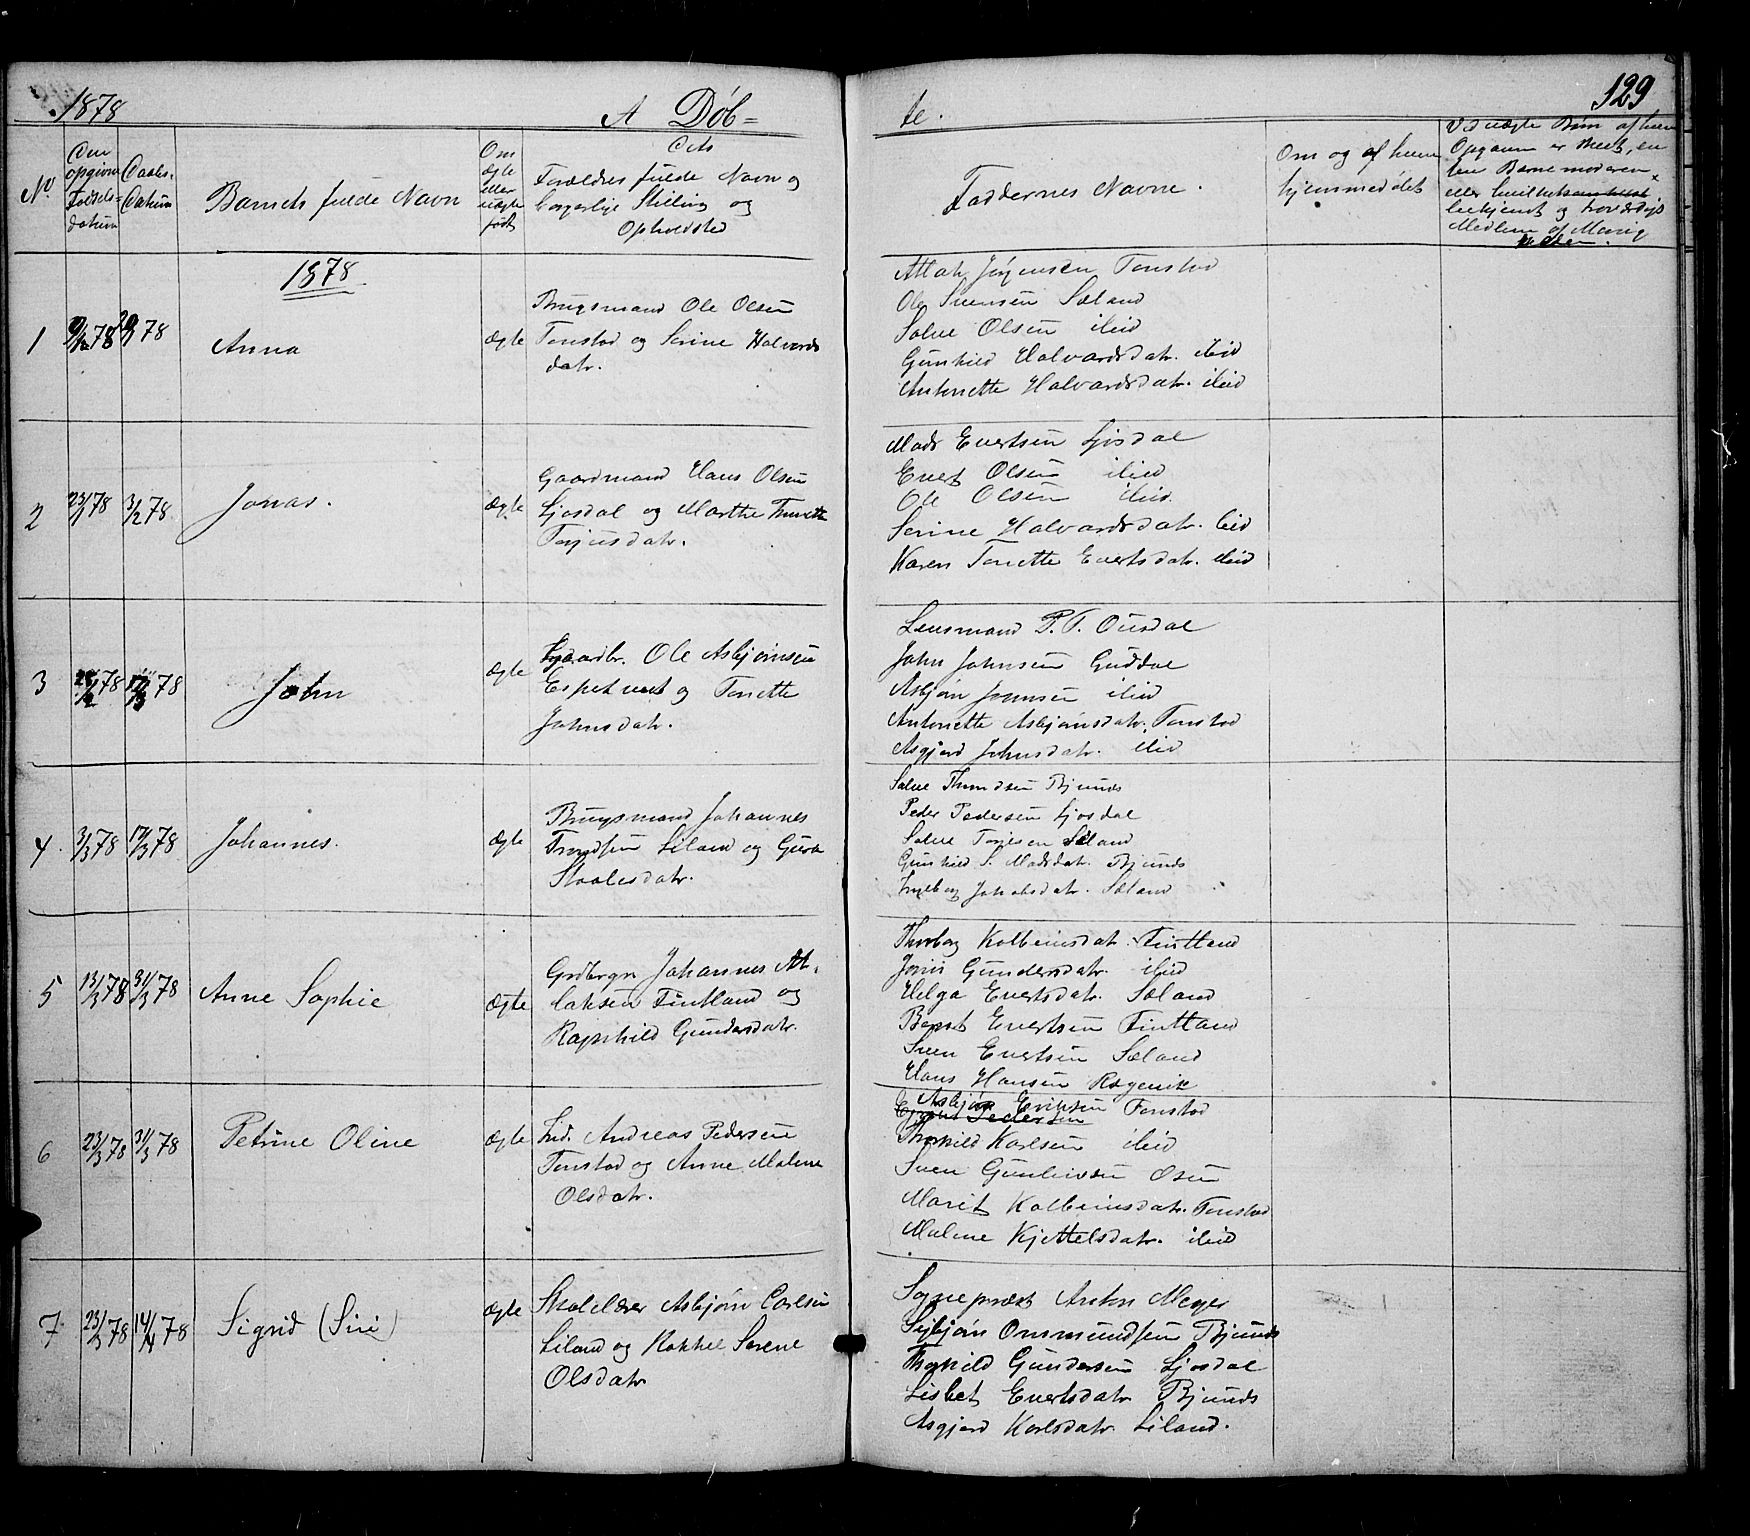 1878
A Døb=
te.
129
No
Den
opgivne
Fødsels-
datum
Daabs-
Datum
Barnets fulde Navn
Om
ægte
eller
uægte
født
Dets
Forældres fulde Navn og
borgerlige Stilling og
Opholdsted
Faddernes Navne.
Om og af hvem
hjemmedøbt
Ved uægte Børn af hvem
Opgaven er skeet, en
ten Barnemoderen
eller
bekjendt og troværdigt
Medlem af Menig
heden.
1878
1
78
78
Anna
ægte
Brugsmand Ole Olsen
Tonstad og Serine Halvords
datr.
Atlak Jørgensen Tonstad
Ole Svensen Sæland
Salve Olsen ibid
Gunhild Halvardsdatr. ibid
Antonette Halvardsdatr. ibid
2
23/1 78
3/2 78
Jonas.
ægte
Gaardmand Hans Olsen
Ljosdal og Marthe Tonette
Terjusdatr.
Mads Evertsen Ljosdal
Evert Olsen ibid
Ole Olsen ibid.
Serine Halvardsdatr. ibid
Karen Tonette Evertsdatr. ibid
3
78
17/3 78
John
ægte
Gaardbr. Ole Asbjørnsen
Espetveit og Tonette
Johnsdatr.
Lensmand P. T. Ousdal
John Johnsen Guddal
Asbjørn Jonnsen ibid
Antonette Asbjørnsdatr. Tonstad
Asgjerd Johnsdatr. ibid
4
3/3 78
17/3 78
Johannes.
ægte
Brugsmand Johannes
Trondsen Liland og Guro
Staalesdatr.
Salve Throndsen Bjunes
Peder Pedersen Ljosdal
Salve Tørresen Sæland
Gunhild S. Madsdatr. Bjunes
Ingeborg Jakobsdatr. Sæland
5
13/3 78
31/3 78
Anne Sophie
ægte
Grdbrgr Johannes At-
laksen Fintland og
Ragnhild Gundersdatr.
Thorborg Kolbeinsdatr. Fintland
Gundersdatr. ibid
Helga Evertsdatr. Sæland
Berent Evertsen Fintland
Sven Evertsen Sæland
Hans Hansen Røgevik
6
23/3 78
31/3 78
Petrine Oline
ægte
Ind. Andreas Pedersen
Tonstad og Anne Malene
Olsdatr.
Asbjørn Eriksen Tonstad
Pedersen
Thorkild Karlsen ibid
Sven Gunleivsen Øsen
Marit Kolbeinsdatr. Tonstad
Malene Kjettelsdatr. ibid
7
23/3 78
14/4 78
Sigrid (Siri)
ægte
Skolelærer Asbjørn Carlsen
Liland og Rakkel Serene
Olsdatr
Sognepræst Anton Meyer
Sigbjørn Ommundsen Bjunes
Thorkild Gundersen Ljosdal
Lisbet Evertsdatr Bjunes
Asgjerd Karlsdatr. Liland.